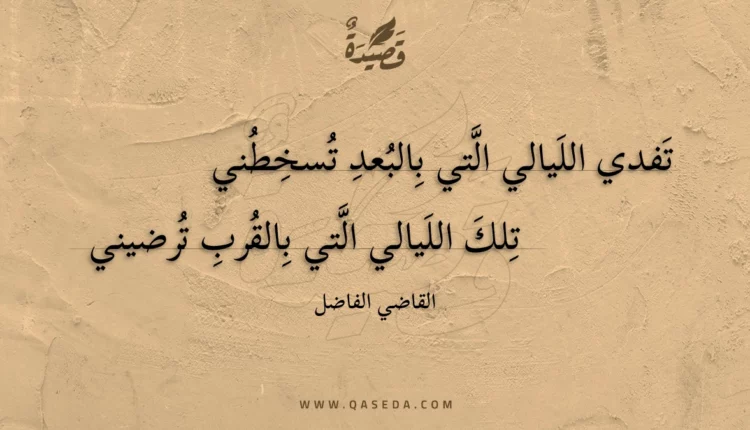 قَصِيْدَةٌ
تَفدي اللَيالي الَّتي بِالبُعدِ تُسخِطُني
تِلكَ اللَيالي الَّتي بِالقُربِ تُرضيني
القاضي الفاضل
WWW.QASEDA.COM